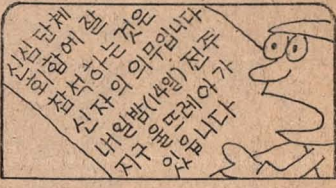 신심 단체
모함에 잘
참석하는 것은
신자의 의무입니다
내일밤(14일) 전주
지구 울뜨레아가
있읍니다